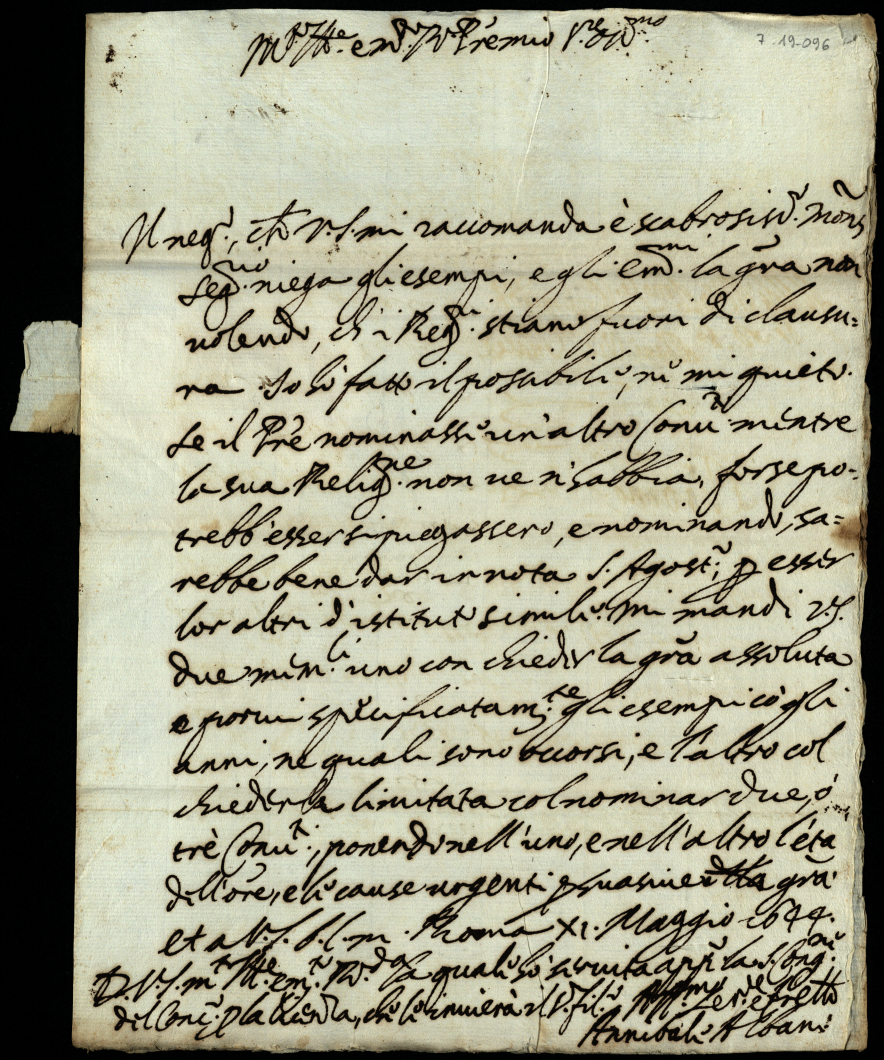 7-19-096
Il neg.º, ch̃ V.S. mi raccomanda è scabrosiss.º Mons.
Seg.rio niega gli esempi, e gli Em.mi la grã non
volendo, ch̃ i Reg.ri stiano fuori di clausu=
ra. Io hò fatto il possibile, nè mi quieto.
Se il Prẽ nominasse un'altro Convẽ mentre
la sua Relig.ne non ve n'habbia, forse po=
trebb'esser si piegassero, e nominando, sa=
rebbe bene dar in nota S. Agost.º, p esser
lor altri d'istituto simile. Mi mandi V.S.
due mem.li uno con chieder la grã assoluta
e porvi specificatam.te gli esempi cõ gli
anni, ne quali sono occorsi, e l'altro col
chiederla limitata col nominar due, ò
trè Conv.ti, ponendo nell'uno, e nell'altro l'età
dell'Orẽ, e le cause urgenti p suasive della grã
et a V.S. b.l.m. Roma XI. Maggio 1644.
D.V.S. m.to Ill.e e m.to R.da la quale hò servita app.º la S. Cong.ne
del Conc.º p la licenza, che le invierà il
Annibale Albani